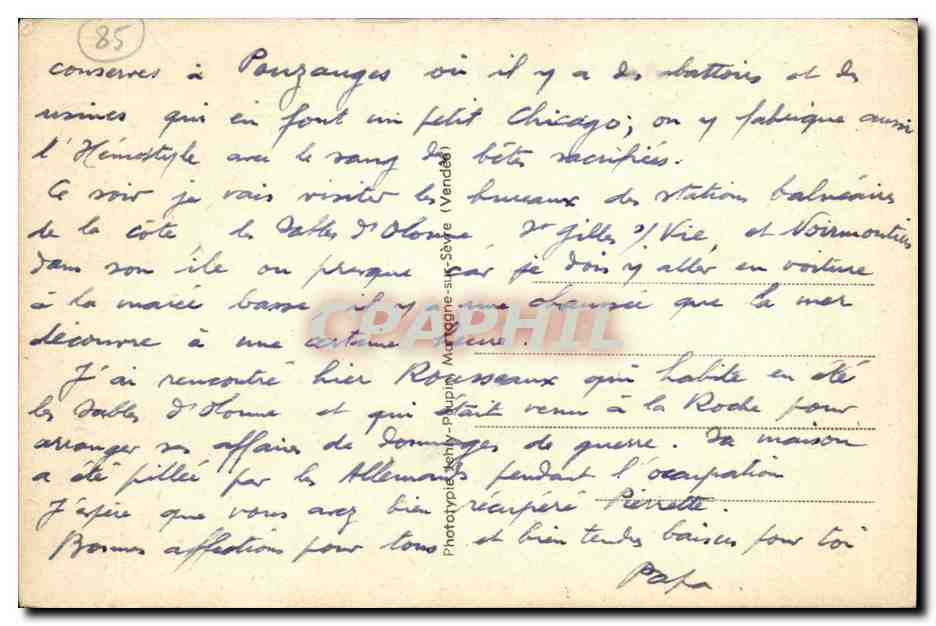 85
conserves à Pouzauges où il y a des abattoirs et des
usines qui en font un petit Chicago; on y fabrique aussi
l'Hémostyle avec le sang des bêtes sacrifiées.
Ce soir je vais visiter les bureaux des stations balnéaires
de la côte, les Sables d'Olonne St Gilles s/ Vie, et Noirmoutier
dans son île ou presque car je dois y aller en voiture
à la marée basse il y a une chaussée que la mer
découvre à une certaine heure.
J'ai rencontré hier Rousseaux qui habite en été
les Sables d'Olonne et qui était venu à la Roche pour
arranger ses affaires de dommages de guerre. Sa maison
a été pillée par les Allemands pendant l'occupation
J'espère que vous avez bien récupéré Pierrette.
Bonnes affections pour tous et bien tendres baisers pour toi
Papa.
Phototypie Jehly-Poupin, Mortagne-sur-Sèvre (Vendée)
CPAPHIL